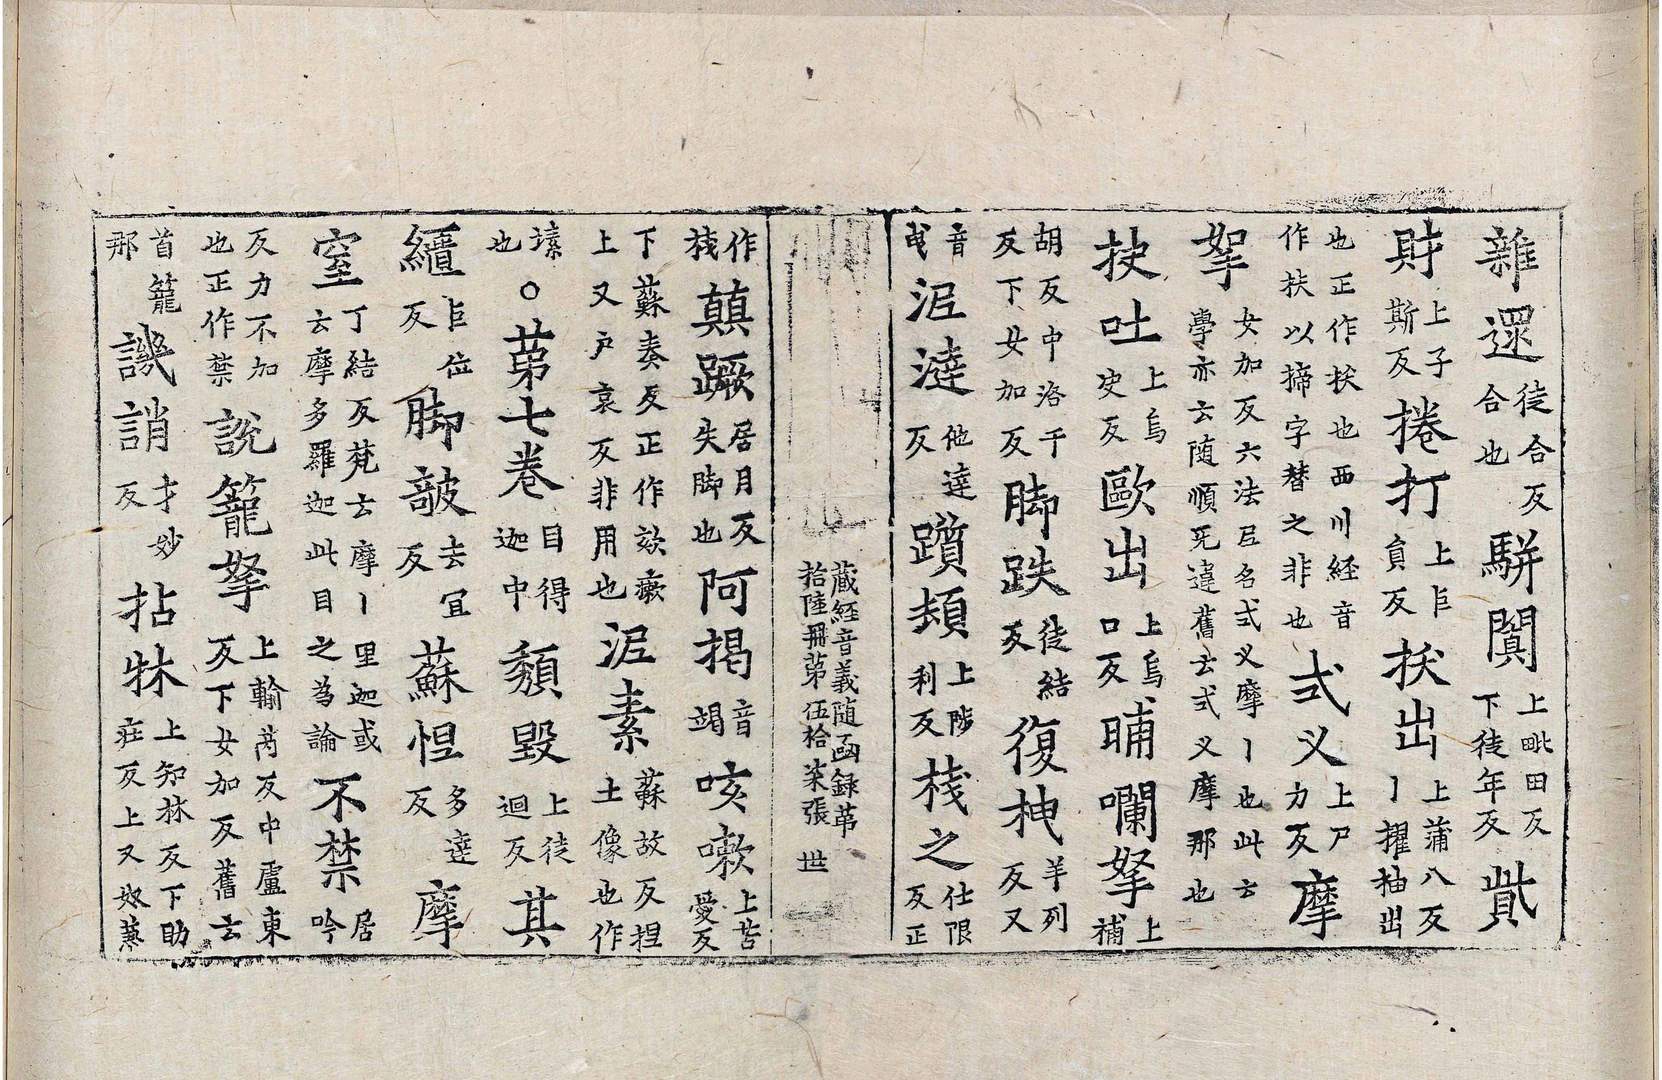 雜遝徒合反合也駢闐上毗田反下徒年反貲
財上子斯反捲打上𠃨貟反拔出上蒲八反丨擢抽出
也正作拔也西川経音作扶以擿字替之非也式叉上尸力反摩
拏女加反六法𠃨名式叉摩丨也此云學亦云随順死違舊云式叉摩那也
抰吐上烏史反歐出上烏口反晡㘓拏上補
胡反中洛干反下女加反脚跌徒結反復抴羊列反又
音曵泥澾他達反躓頬上陟利反栈之仕限反正
藏経音義随函録苐拾陸冊苐伍拾柒張 世
作栈蹎蹶居月反失脚也阿揭音竭咳嗽上苦愛反
下蘇奏反正作欬瘶上又戶哀反非用也泥素蘇故反捏土像也作
塐也○苐七卷目得迦中頽毀上徒迴反其
繿𠃨位反脚㿺去冝反蘇怛多達反摩
窒丁結反梵云摩丨里迦或云摩多羅迦此目之為論不禁居吟
反力不加也正作禁說籠拏上輸芮反中盧東反下女加反舊云
首籠那譏誚才妙反拈牀上知林反下助莊反上又奴蒹